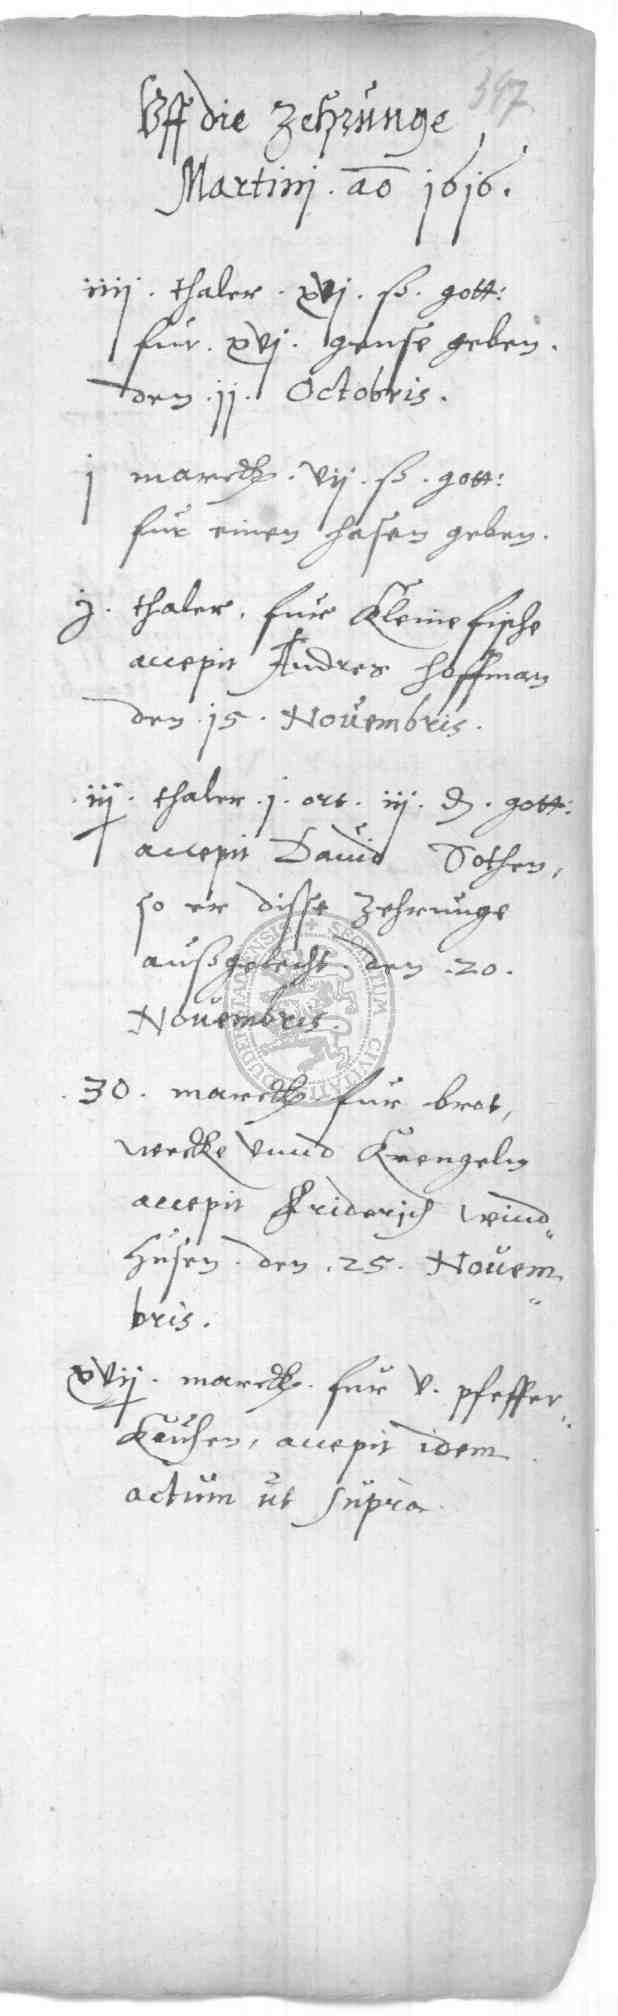 397
Vff die Zehrunge
Martinj. ao 1616.
iiij. thaler. xvj. ß. gott:
fur. xvj. gense geben.
den. jj. Octobris.
j marck. vij. ß. gott:
fur einen hasen geben.
thaler. fur Kleine fische
accepit Andres Hoffman
den. 15. Nouembris.
thaler. j. ort. iij. d. gott:
accepit Dauid Dothen,
so er disse Zehrunge
außgelecht. den. 20.
Nouembris.
30. marck fur brot,
wecke vnnd Krengeln
accepit Friderich Wind„
husen. den. 25. Nouem„
bris.
marck. fur v. pfeffer„
Kuchen, accepit idem
actum ut supra.